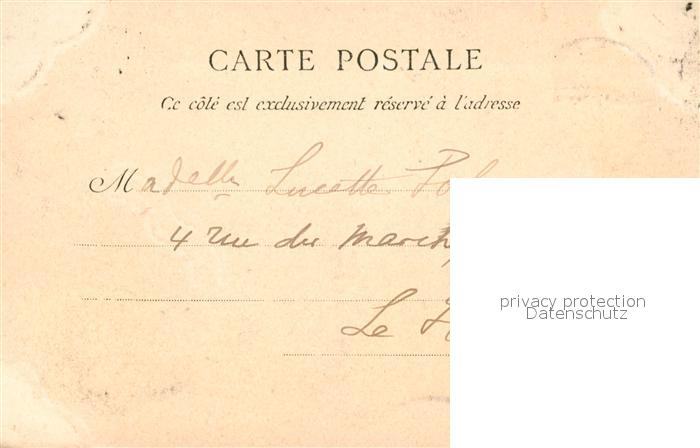 CARTE POSTALE
Ce côté est exclusivement réservé à l'adresse
Madelle Lucette
4 rue du
Le
privacy protection
Datenschutz